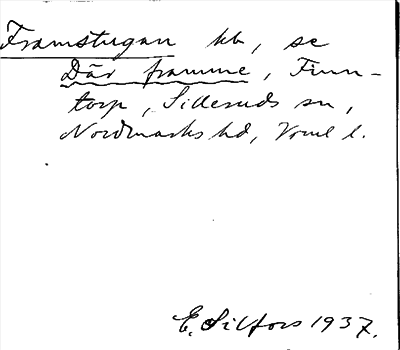 Framstugan kb, se
Där framme, Finn-
torp, Silleruds sn,
Nordmarks hd, Vrml l.
E. Silfors 1937.